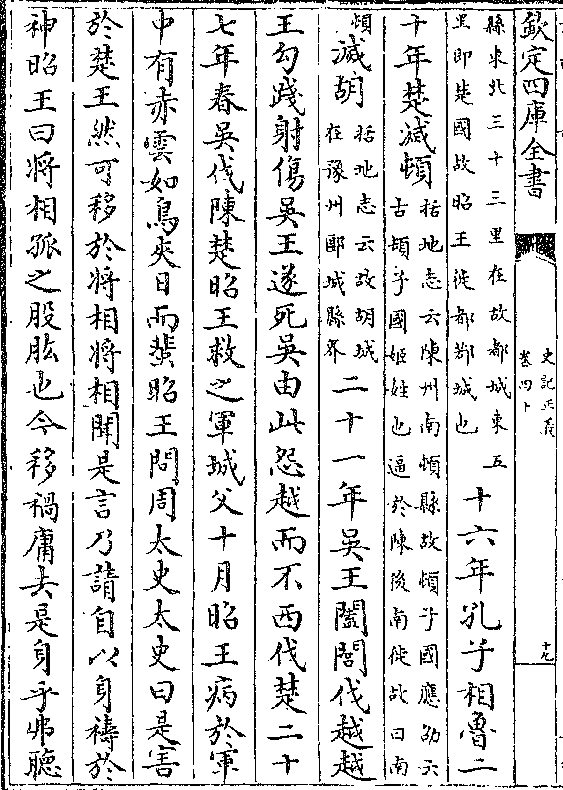 欽定四庫全書
史記正義
卷四十
十九
縣東北三十三里在故都城東五
里即楚國故昭王徙都鄀城也
十六年孔子相魯二
十年楚滅頓
括地志云陳州南頓縣故頓子國應劭云
古頓子國姬姓也逼於陳後南徙故曰南
頓
滅胡
括地志云故胡城
在豫州郾城縣界
二十一年吳王闔閭伐越越
王勾踐射傷吳王遂死吳由此怨越而不西伐楚二十
七年春吳伐陳楚昭王救之軍城父十月昭王病於軍
中有赤雲如鳥夾日而蜚昭王問周太史太史曰是害
於楚王然可移於將相將相聞是言乃請自以身禱於
神昭王曰將相孤之股肱也今移禍庸去是身乎弗聽